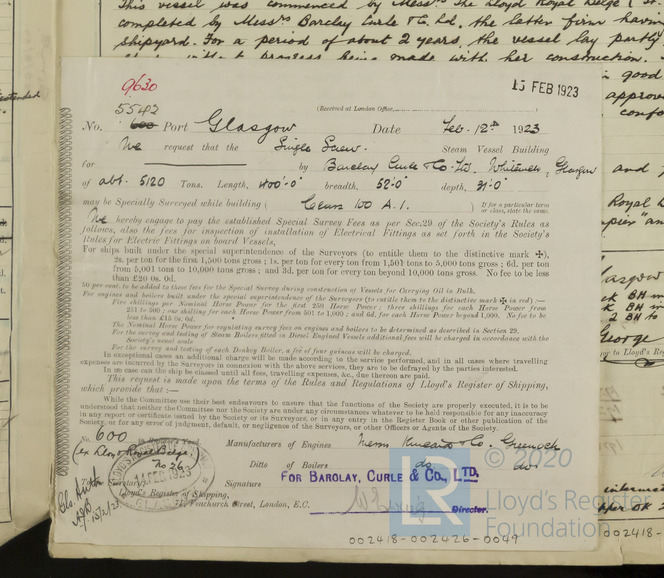 This vessel was commenced by Messrs The Lloyd Royal Belge
completed by Messrs Barclay Curle & Co. Ld, the latter firm
shipyard. For a period of about 2 years, the vessel lay partly
being made with her construction.
9630
15 FEB 1923
(Received at London Office,
5542
No. 600 Port Glasgow Date Feb. 12th 1923
We request that the Single Screw Steam Vessel Building
for by Barclay Curle & Co. Ltd. Whiteinch, Glasgow
of abt. 5120 Tons. Length, 400'-0" breadth, 52-0 depth, 31-0
may be Specially Surveyed while building ( Class 100 A.1. ) If for a particular term or class, state the same.
We hereby engage to pay the established Special Survey Fees as per Sec.29 of the Society's Rules as
follows, also the fees for inspection of installation of Electrical Fittings as set forth in the Society's
Rules for Electric Fittings on board Vessels,
For ships built under the special superintendence of the Surveyors (to entitle them to the distinctive mark ✠),
2s. per ton for the first 1,500 tons gross; 1s. per ton for every ton from 1,501 tons to 5,000 tons gross; 6d. per ton
from 5,001 tons to 10,000 tons gross; and 3d. per ton for every ton beyond 10,000 tons gross. No fee to be less
than £20 0s. 0d.
50 per cent. to be added to these fees for the Special Survey during construction of Vessels for Carrying Oil in Bulk.
For engines and boilers built under the special superintendence of the Surveyors (to entitle them to the distinctive mark ✠ in red) :—
Five shillings per Nominal Horse Power for the first 250 Horse Power; three shillings for each Horse Power from
251 to 500; one shilling for each Horse Power from 501 to 1,000; and 6d. for each Horse Power beyond 1,000. No fee to be
less than £15 0s. 0d.
The Nominal Horse Power for regulating survey fees on engines and boilers to be determined as described in Section 29.
For the survey and testing of Steam Boilers fitted in Diesel Engined Vessels additional fees will be charged in accordance with the
Society's usual scale
For the survey and testing of each Donkey Boiler, a fee of four guineas will be charged.
In exceptional cases an additional charge will be made according to the service performed, and in all cases where travelling
expenses are incurred by the Surveyors in connection with the above services, they are to be defrayed by the parties interested.
In no case can the ship be classed until all fees, travelling expenses, &c., due thereon are paid.
This request is made upon the terms of the Rules and Regulations of Lloyd's Register of Shipping,
which provide that :—
While the Committee use their best endeavours to ensure that the functions of the Society are properly executed, it is to be
understood that neither the Committee nor the Society are under any circumstances whatever to be held responsible for any inaccuracy
in any report or certificate issued by the Society or its Surveyors, or in any entry in the Register Book or other publication of the
Society, or for any error of judgment, default, or negligence of the Surveyors, or other Officers or Agents of the Society.
No. 600 in Builder's Yard.
(ex Lloyd Royal Belge
No 26)
Manufacturers of Engines Messrs Kincaid & Co. Greenock
Ditto of Boilers do do
14 FEB 1923
Secretary
Lloyd's Register of Shipping,
71, Fenchurch Street, London, E.C.
Signature
FOR BARCLAY, CURLE & CO., LTD.
Director.
15/2/23
LR
© 2020
Lloyd's Register
Foundation
002418-002426-0049
good
Royal
Glasgow
BH
BH
2 BH to
George
to Lloyd's
002418-